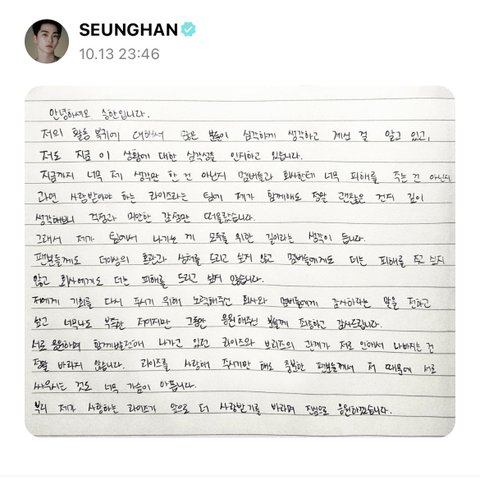 SEUNGHAN
10.13 23:46
안녕하세요 승한입니다.
저의 활동 복귀에 대해서 많은 분들이 심각하게 생각하고 계신 걸 알고 있고,
저도 지금 이 상황에 대한 심각성을 인지하고 있습니다.
지금까지 너무 제 생각만 한 건 아닌지 멤버들과 회사한테 너무 피해를 주는 건 아닌지
과연 사랑받아야 하는 라이즈라는 팀에 제가 함께해도 정말 괜찮은 건지 깊이
생각해보니 걱정과 미안한 감정만 떠올랐습니다.
그래서 제가 팀에서 나가는 게 모두를 위한 길이라는 생각이 듭니다.
팬분들께도 더이상의 혼란과 상처를 드리고 싶지 않고 멤버들에게도 더는 피해를 주고 싶지
않고 회사에게도 더는 피해를 드리고 싶지 않습니다.
저에게 기회를 다시 주시기 위해 노력해주신 회사와 멤버들에게 감사하다는 말을 전하고
싶고 너무나도 부족한 저이지만 그동안 응원해주신 분들께 죄송하고 감사드립니다.
서로 응원하며 함께발전해 나가고 있던 라이즈와 브리즈의 관계가 저로 인해서 나빠지는 건
정말 바라지 않습니다. 라이즈를 사랑해 주시기만 해도 충분한 팬분들께서 저 때문에 서로
싸우시는 것도 너무 가슴이 아픕니다.
부디 제가 사랑하는 라이즈가 앞으로 더 사랑받기를 바라며 진심으로 응원하겠습니다.